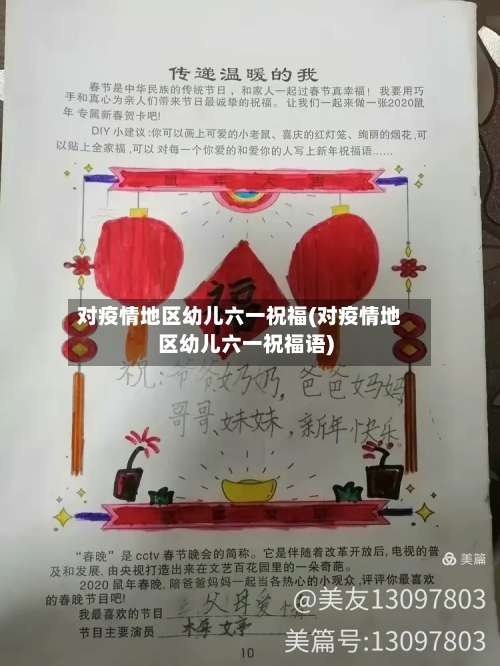 传递温暖的我
春节是中华民族的传统节日，和家人一起过春节真幸福！我要用巧
手和真心为亲人们带来节日最诚挚的祝福。让我们一起来做一张2020鼠
年 专属新春贺卡吧!
DIY 小建议:你可以画上可爱的小老鼠、喜庆的红灯笼、绚丽的烟花,可
以贴上全家福,可以 对每一个你爱的和爱你的人写上新年祝福语……
鼠年大吉
福
对疫情地区幼儿六一祝福(对疫情地
区幼儿六一祝福语)
祝:爷爷奶奶,爸爸妈妈,
哥哥、妹妹,新年快乐
“春晚”是 cctv 春节晚会的简称。它是伴随着改革开放后,电视的普
及和发展,由央视打造出来在文艺百花园里的一朵奇葩。
2020 鼠年春晚,陪爸爸妈妈一起当各热心的小观众,评评你最喜欢
的春晚节目吧!
我最喜欢的节目 父母爱情
节目主要演员
10
美篇
@美友13097803
美篇号:13097803